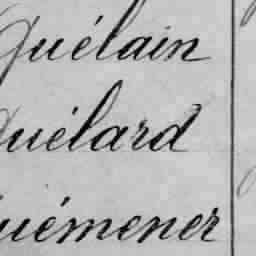 Guélain
Guélard
Guémener